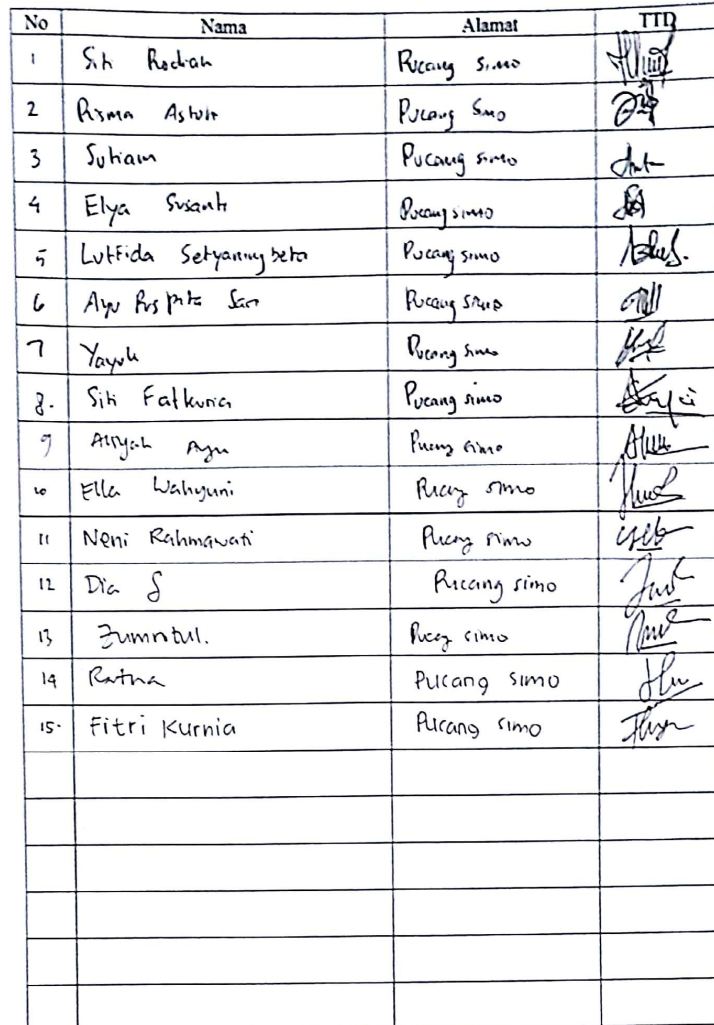 No Nama Alamat TTD
1 Siti Rodiah Pucang Simo
2 Risma Astuti Pucang Simo
3 Sutiam Pucang simo
4 Elya Susanti Pucang simo
5 Lutfida Setyaningbeta Pucang simo
6 Ayu Puspita Sari Pucang simo
7 Yayuk Pucang simo
8. Siti Fatkuria Pucang simo
9 Aliyah Ayu Pucang simo
10 Ella Wahyuni Pucang simo
11 Neni Rahmawati Pucang simo
12 Dia S Pucang simo
13 Zumrotul. Pucang simo
14 Ratna Pucang simo
15. Fitri Kurnia Pucang simo